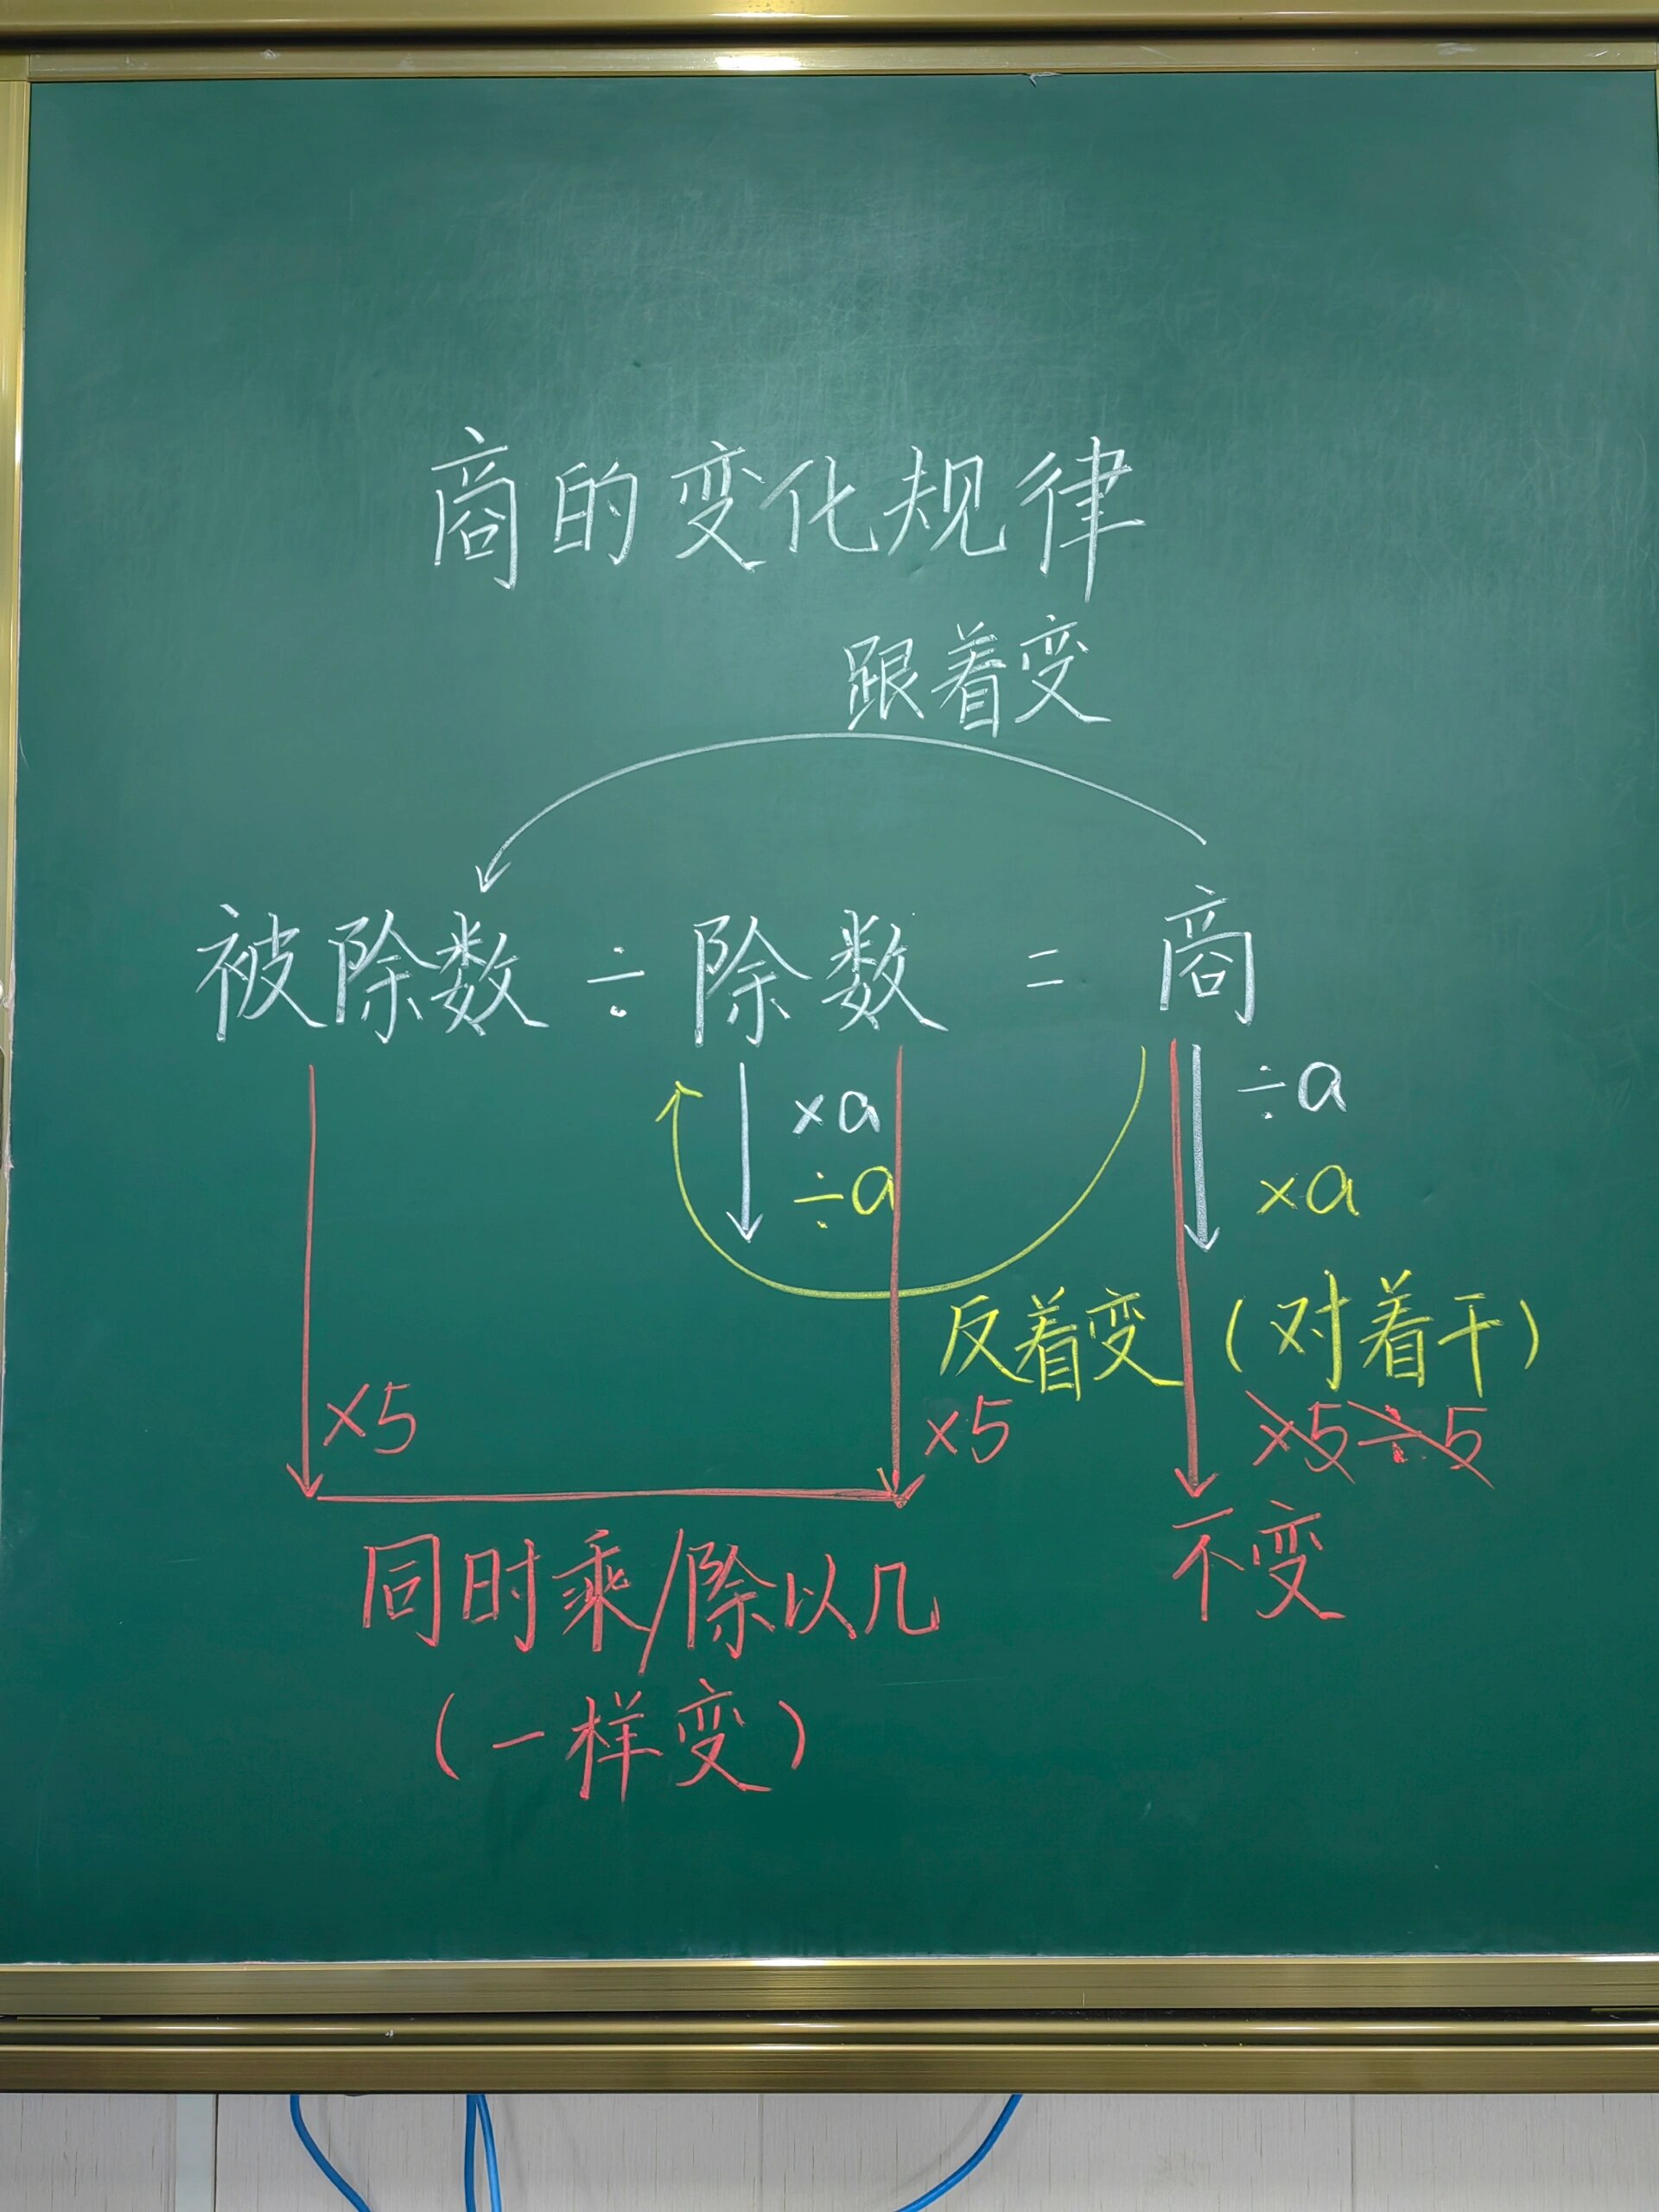 商的变化规律
跟着变
被除数 ÷ 除数 = 商
×a ÷a
÷a ×a
反着变 (对着干)
×5 ×5 ×5÷5
同时乘/除以几 不变
(一样变)